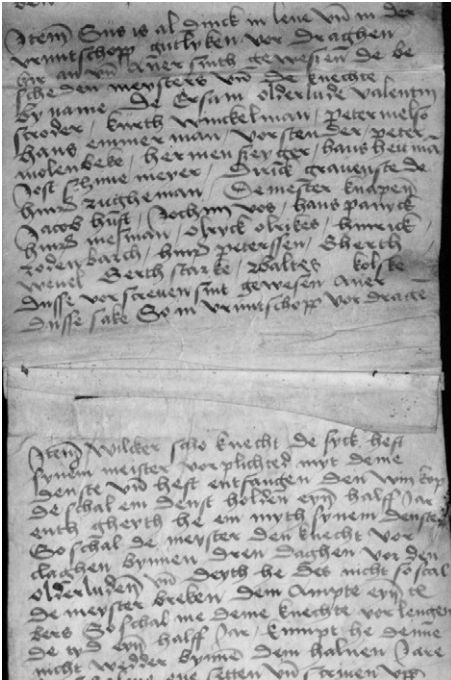 Item Sus is al dinck in leve vnd in der
vruntschopp gutlyken vor draghen
hir an vnd auer sinth gewesen de be
scheden meysters vnd de knechte
by name De Ersam olderlude valentin
scroder / kurth winckelman / peter melso
hans emmerman / vorstender / peter
molenbeke / hermen / hans
Jost meyer / Dirick gravenstede
hinrik / De mester knapen
Jacob / Jochim vos / hans
hinrik mesman / olryck olrikes / hinrick
rodenbarch / hinrik peterssen / Gherth
Gerth starke / kolste
dusse vorscreuen sint gewesen auer
dusse sake So in vruntschopp vor dragen
Item welcker scho knecht de syck heft
synem meister vorplichted myt deme
denste vnd heft entfangen den wynkop
de schal em denst holden eyn halff Jar
enth gheyth he em myth synem denste
So schal de meyster den knecht vor
claghen bynnen dren daghen vor den
olderluden vnd deyth he des nicht so scal
de meyster breken dem Ampte eyn
bers So schal me deme knechte vorlengen
de tyd eyn halff Jar / kumpt he denne
nicht wedder bynnen dem haluen Jare
setten vnd scriuen vpp